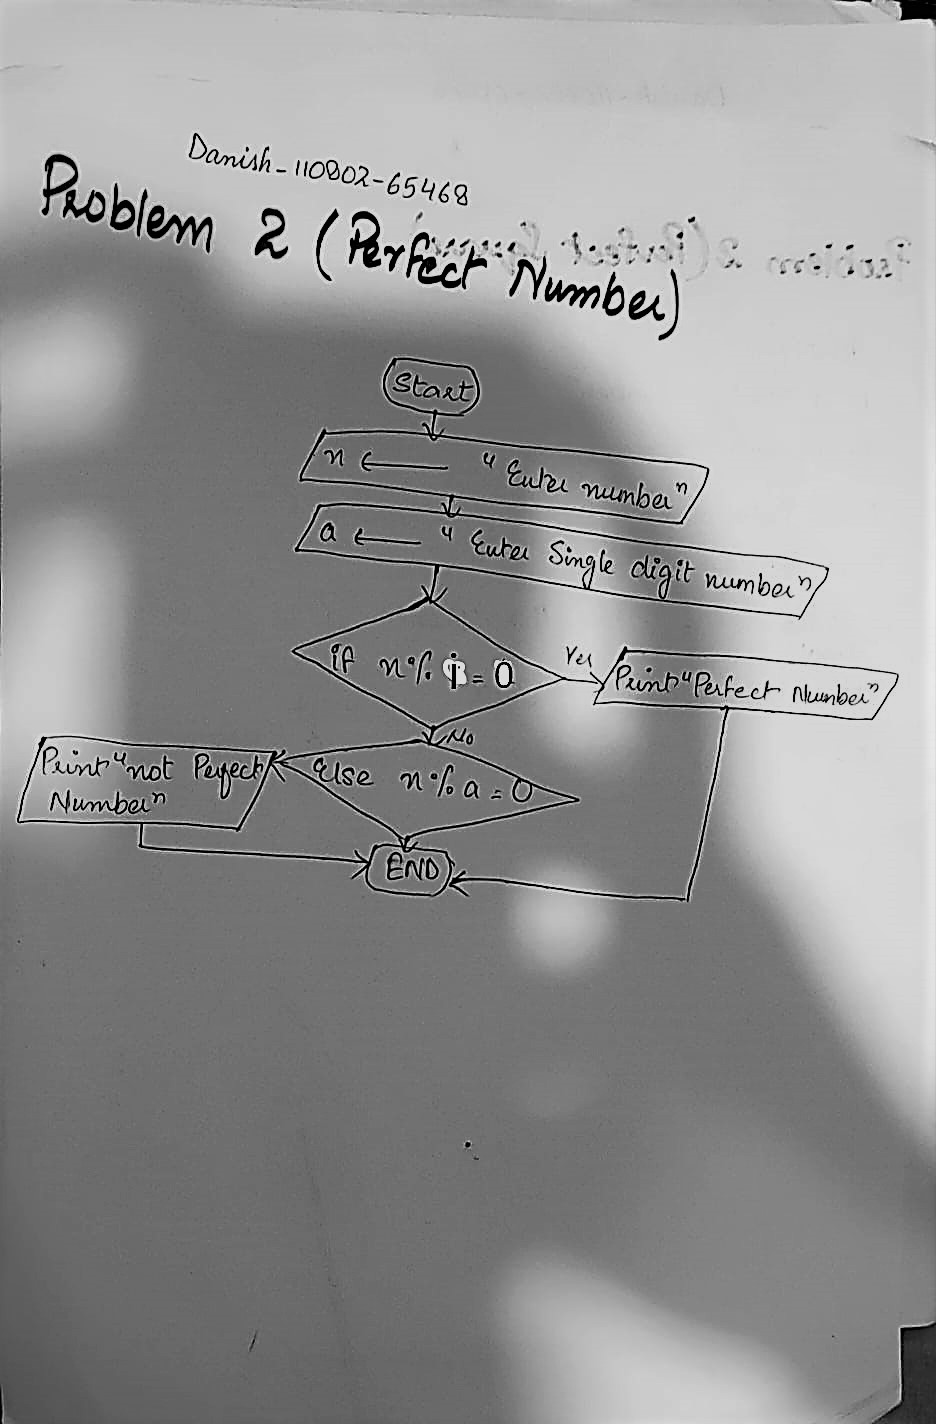 Danish-110802-65468
Problem 2 (Perfect Number)
Start
n ← "Enter number"
a ← "Enter Single digit number"
if n % i = 0
Yes
Print "Perfect Number"
No
Else n % a = 0
Print "not Perfect
Number"
END